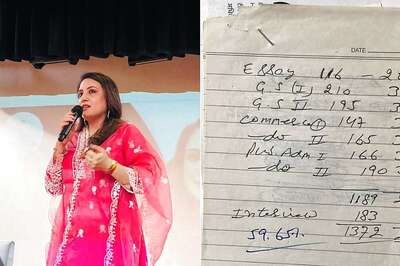 DATE
Essay 116 - 20
G.S (I) 210 3
G.S II 195 3
Commerce I 147 3
-do II 165 3
Pub Adm I 166 3
-do II 190 3
1189
Interview 183
59.65% 1372